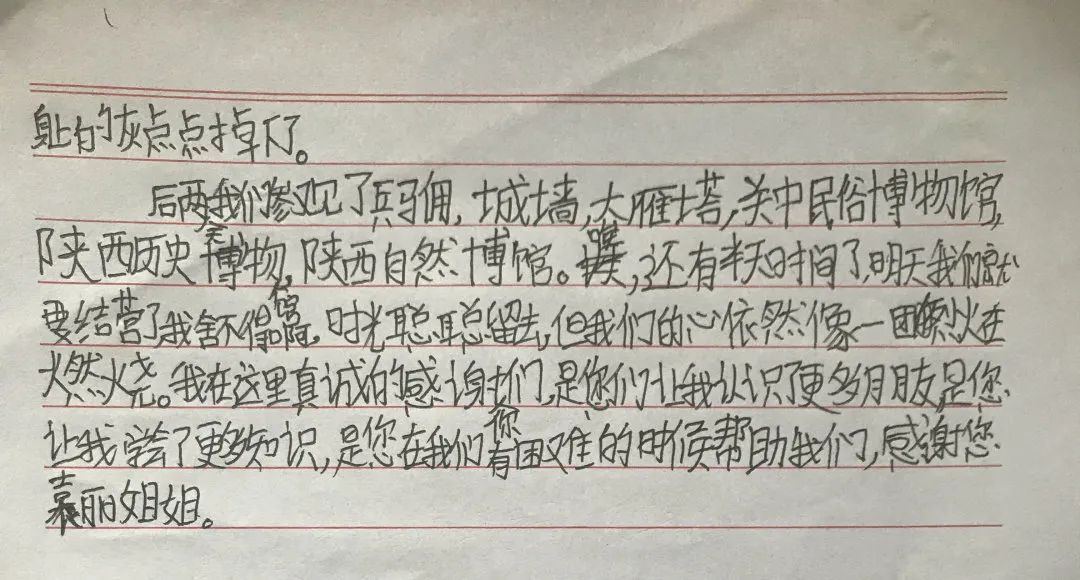 身上的灰点点掉下了。
后两天我们参观了兵马俑,城墙,大雁塔,关中民俗博物馆,
陕西历史博物馆,陕西自然博馆。唉,还有半天时间了,明天我们就
要结营了我舍不得啊。时光聪聪留去,但我们的心依然像一团烈火在
燃烧。我在这里真诚的感谢你们,是您们让我认识了更多朋友是您
让我学会了更多知识,是您在我们有困难的时候帮助我们,感谢您
袁丽姐姐。